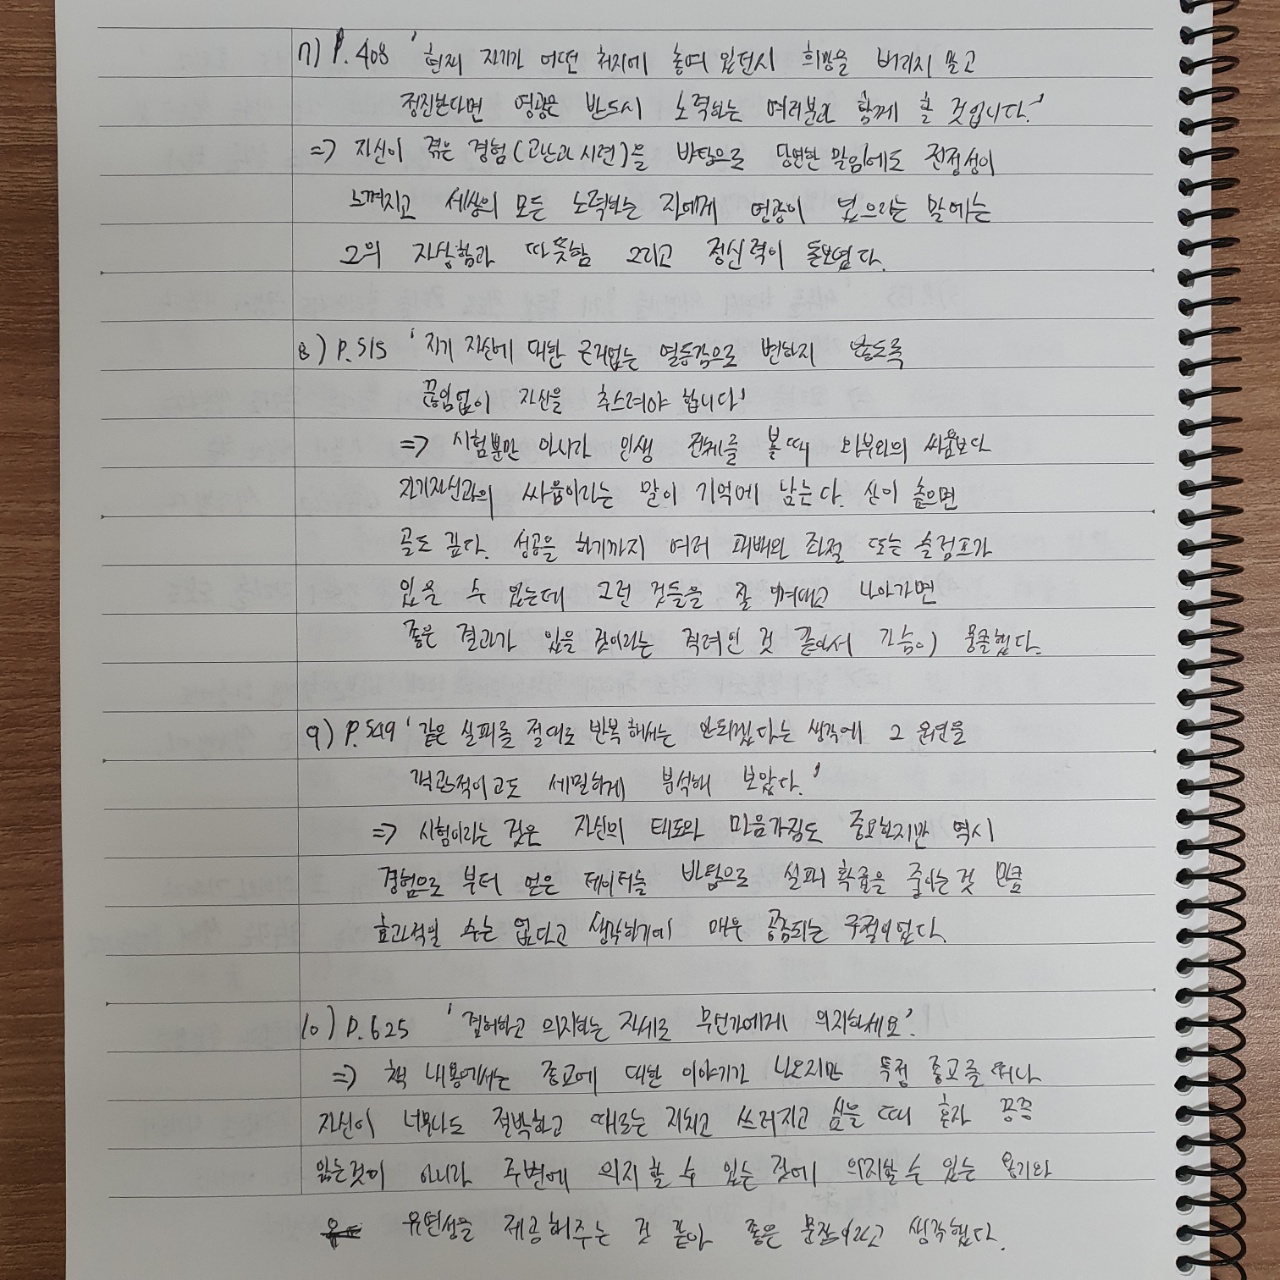 7) P.408 '현재 자기가 어떤 처지에 놓여 있던지 희망을 버리지 말고
정진한다면 영광은 반드시 노력하는 여러분과 함께 할 것입니다.'
=> 자신이 겪은 경험(고난과 시련)을 바탕으로 당연한 말임에도 진정성이
느껴지고 세상의 모든 노력하는 자에게 영광이 있으라는 말에는
그의 자상함과 따뜻함 그리고 정신력이 돋보였다.
8) P.515 '자기 자신에 대한 근거없는 열등감으로 변하지 않도록
끊임없이 자신을 추스려야 합니다'
=> 시험뿐만 아니라 인생 전체를 볼 때 외부와의 싸움보다
자기자신과의 싸움이라는 말이 기억에 남는다. 산이 높으면
골도 깊다. 성공을 하기까지 여러 패배와 좌절 또는 슬럼프가
있을 수 있는데 그런 것들을 잘 이겨내고 나아가면
좋은 결과가 있을 것이라는 격려인 것 같아서 가슴이 뭉클했다.
9) P.549 '같은 실패를 절대로 반복해서는 안되겠다는 생각에 그 원인을
객관적이고도 세밀하게 분석해 보았다.'
=> 시험이라는 것은 자신의 태도와 마음가짐도 중요하지만 역시
경험으로 부터 얻은 데이터를 바탕으로 실패 확률을 줄이는 것 만큼
효과적일 수는 없다고 생각하기에 매우 공감되는 구절이었다.
10) P.625 '겸허하고 의지하는 자세로 무언가에게 의지하세요'.
=> 책 내용에서는 종교에 대한 이야기가 나오지만 특정 종교를 떠나
자신이 너무나도 절박하고 때로는 지치고 쓰러지고 싶을 때 혼자 끙끙
앓는것이 아니라 주변에 의지할 수 있는 것에 의지할 수 있는 용기와
유연성을 제공해주는 것 같아 좋은 문장이라고 생각했다.